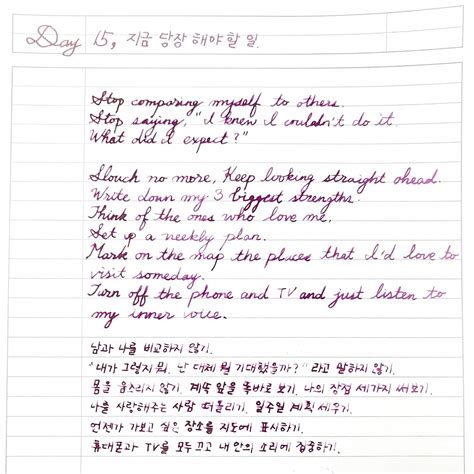 Day 15, 지금 당장 해야 할 일.
Stop comparing myself to others.
Stop saying, "I knew I couldn't do it.
What did I expect?"
Slouch no more, Keep looking straight ahead.
Write down my 3 biggest strengths.
Think of the ones who love me.
Set up a weekly plan.
Mark on the map the places that I'd love to
visit someday.
Turn off the phone and TV and just listen to
my inner voice.
남과 나를 비교하지 않기.
"내가 그렇지 뭐. 난 대체 뭘 기대했을까?" 라고 말하지 않기.
몸을 움츠리지 않기. 계속 앞을 똑바로 보기. 나의 장점 세가지 써보기.
나를 사랑해주는 사람 떠올리기. 일주일 계획 세우기.
언젠가 가보고 싶은 장소를 지도에 표시하기.
휴대폰과 TV를 모두 끄고 내 안의 소리에 집중하기.